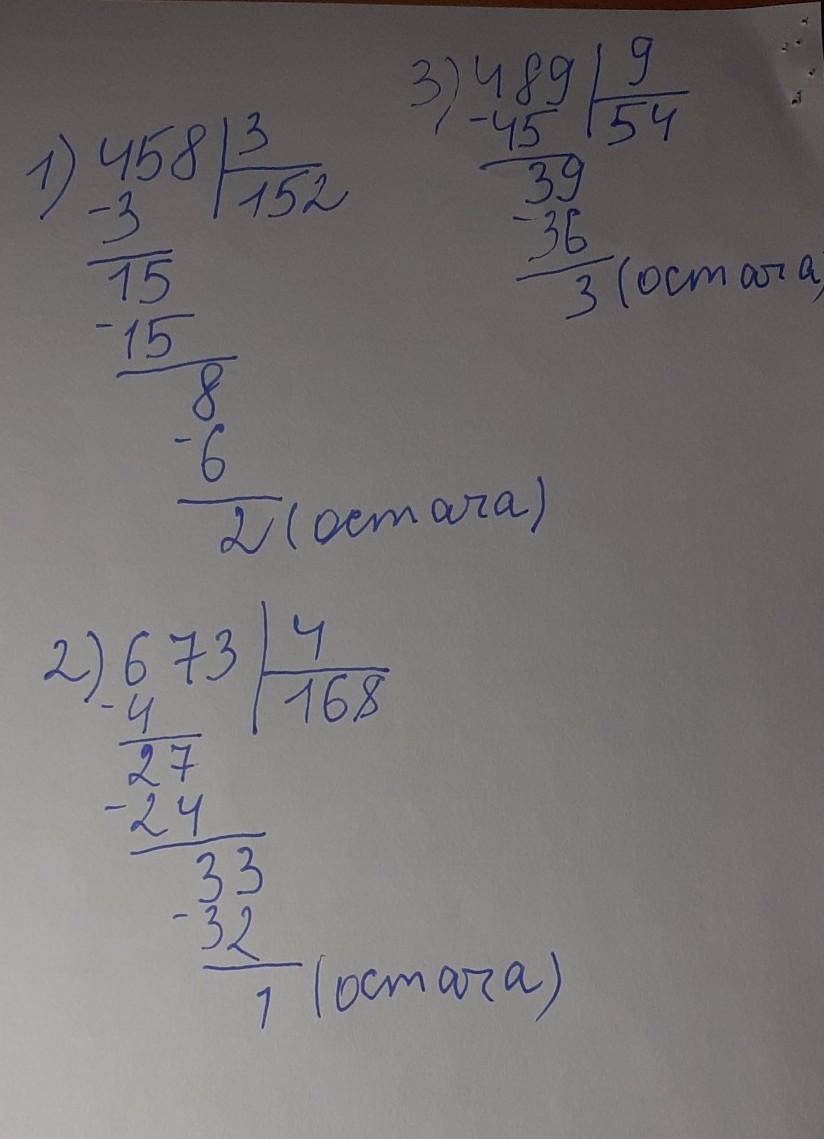 1) 458 | 3
-3 | 152
15
-15
8
-6
2 (остача)
2) 673 | 4
-4 | 168
27
-24
33
-32
1 (остача)
3) 489 | 9
-45 | 54
39
-36
3 (остача)